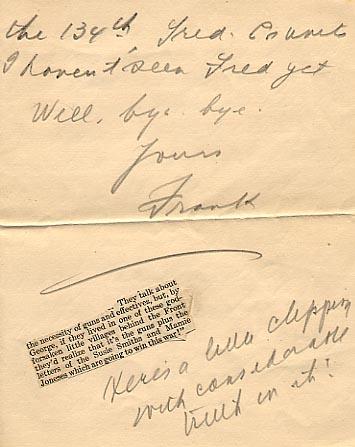 the 134th, Fred. Counts
I haven't seen Fred yet
Will, bye bye.
Yours
Frank
They talk about
the necessity of guns and effectives, but, by
George, if they lived in one of these god-
forsaken little villages behind the Front
they'd realize that it's the guns plus the
letters of the Susie Smiths and Mamie
Joneses which are going to win this war!"
Heres a little clipping
with considerable
truth in it!